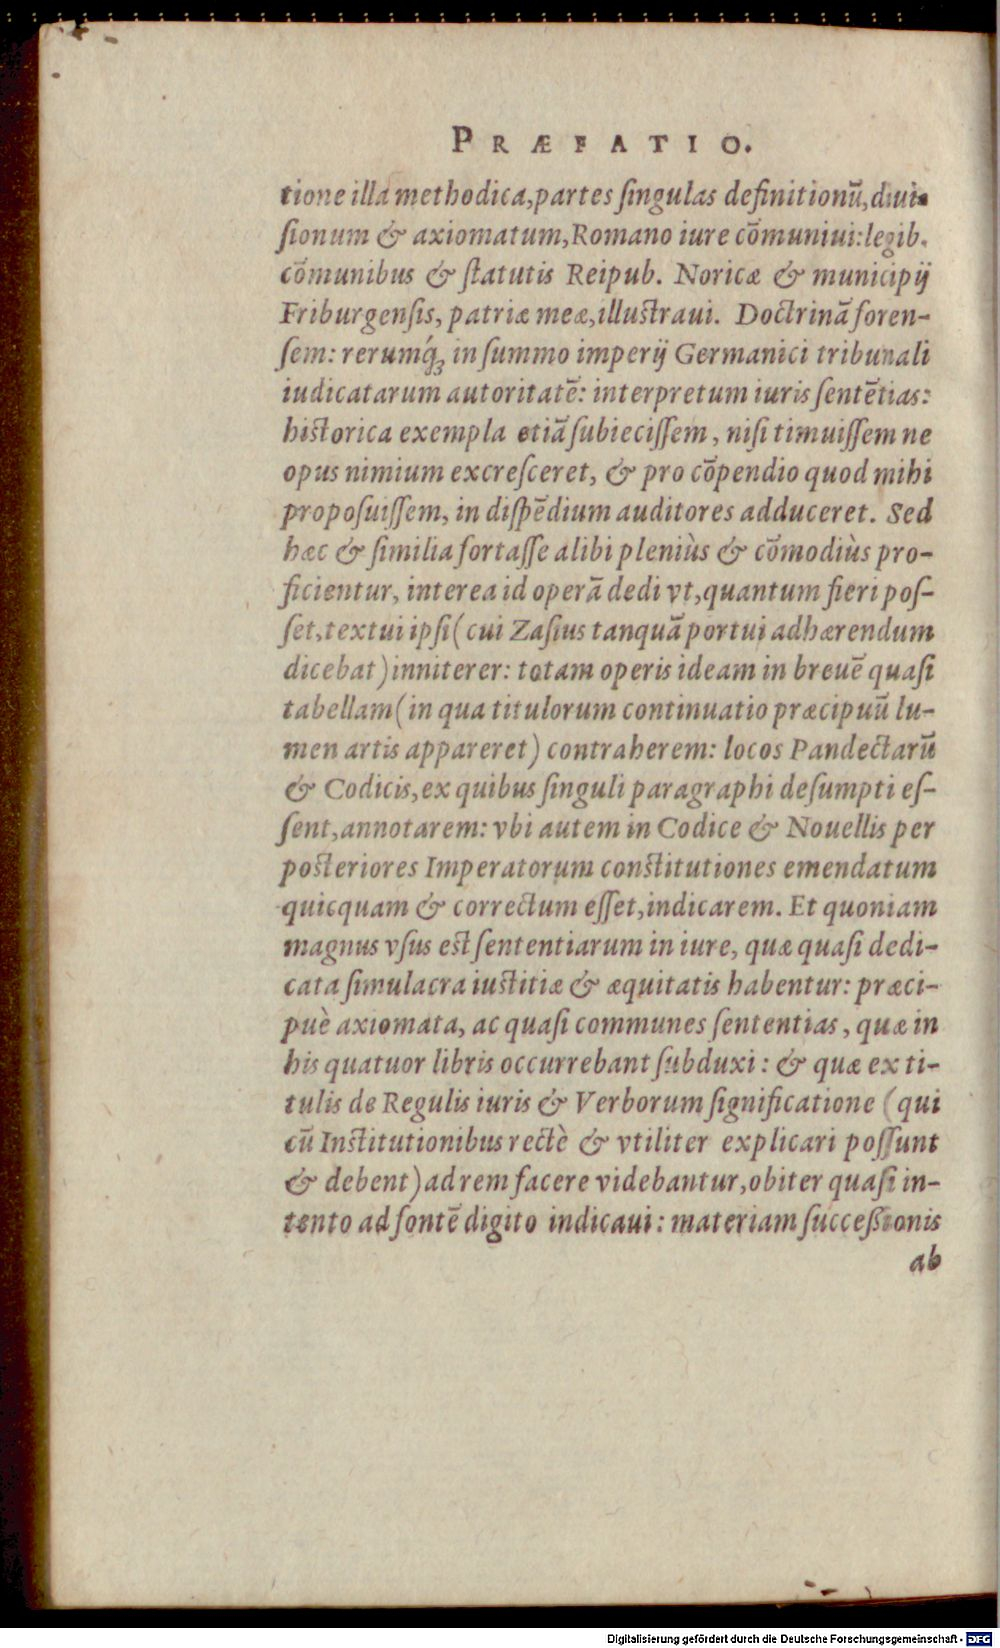 PRÆFATIO.
tione illa methodica, partes ſingulas definitionũ, diui-
ſionum & axiomatum, Romano iure cõmuniui: legib.
cõmunibus & ſtatutis Reipub. Noricæ & municipij
Friburgenſis, patriæ meæ, illuſtraui. Doctrinã foren-
ſem: rerumq́ꝫ in ſummo imperij Germanici tribunali
iudicatarum autoritatẽ: interpretum iuris ſentẽtias:
hiſtorica exempla etiã ſubieciſſem, niſi timuiſſem ne
opus nimium excreſceret, & pro cõpendio quod mihi
propoſuiſſem, in diſpẽdium auditores adduceret. Sed
hæc & ſimilia fortaſſe alibi pleniùs & cõmodiùs pro-
ficientur, interea id operã dedi vt, quantum fieri poſ-
ſet, textui ipſi (cui Zaſius tanquã portui adhærendum
dicebat) inniterer: totam operis ideam in breuẽ quaſi
tabellam (in qua titulorum continuatio præcipuũ lu-
men artis appareret) contraherem: locos Pandectarũ
& Codicis, ex quibus ſinguli paragraphi deſumpti eſ-
ſent, annotarem: vbi autem in Codice & Nouellis per
poſteriores Imperatorum conſtitutiones emendatum
quicquam & correctum eſſet, indicarem. Et quoniam
magnus vſus eſt ſententiarum in iure, quæ quaſi dedi-
cata ſimulacra iuſtitiæ & æquitatis habentur: præci-
puè axiomata, ac quaſi communes ſententias, quæ in
his quatuor libris occurrebant ſubduxi: & quæ ex ti-
tulis de Regulis iuris & Verborum ſignificatione (qui
cũ Inſtitutionibus rectè & vtiliter explicari poſſunt
& debent) ad rem facere videbantur, obiter quaſi in-
tento ad fontẽ digito indicaui: materiam ſucceßionis
ab
Digitalisierung gefördert durch die Deutsche Forschungsgemeinschaft - DFG